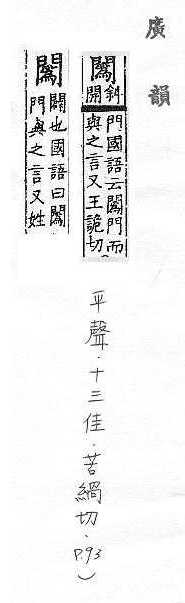 廣韻
䦱
斜開
門國語云䦱門而
與之言又王詭切
平聲．十三佳．苦緺切．P.93）
䦱
闢也國語曰䦱
門與之言又姓